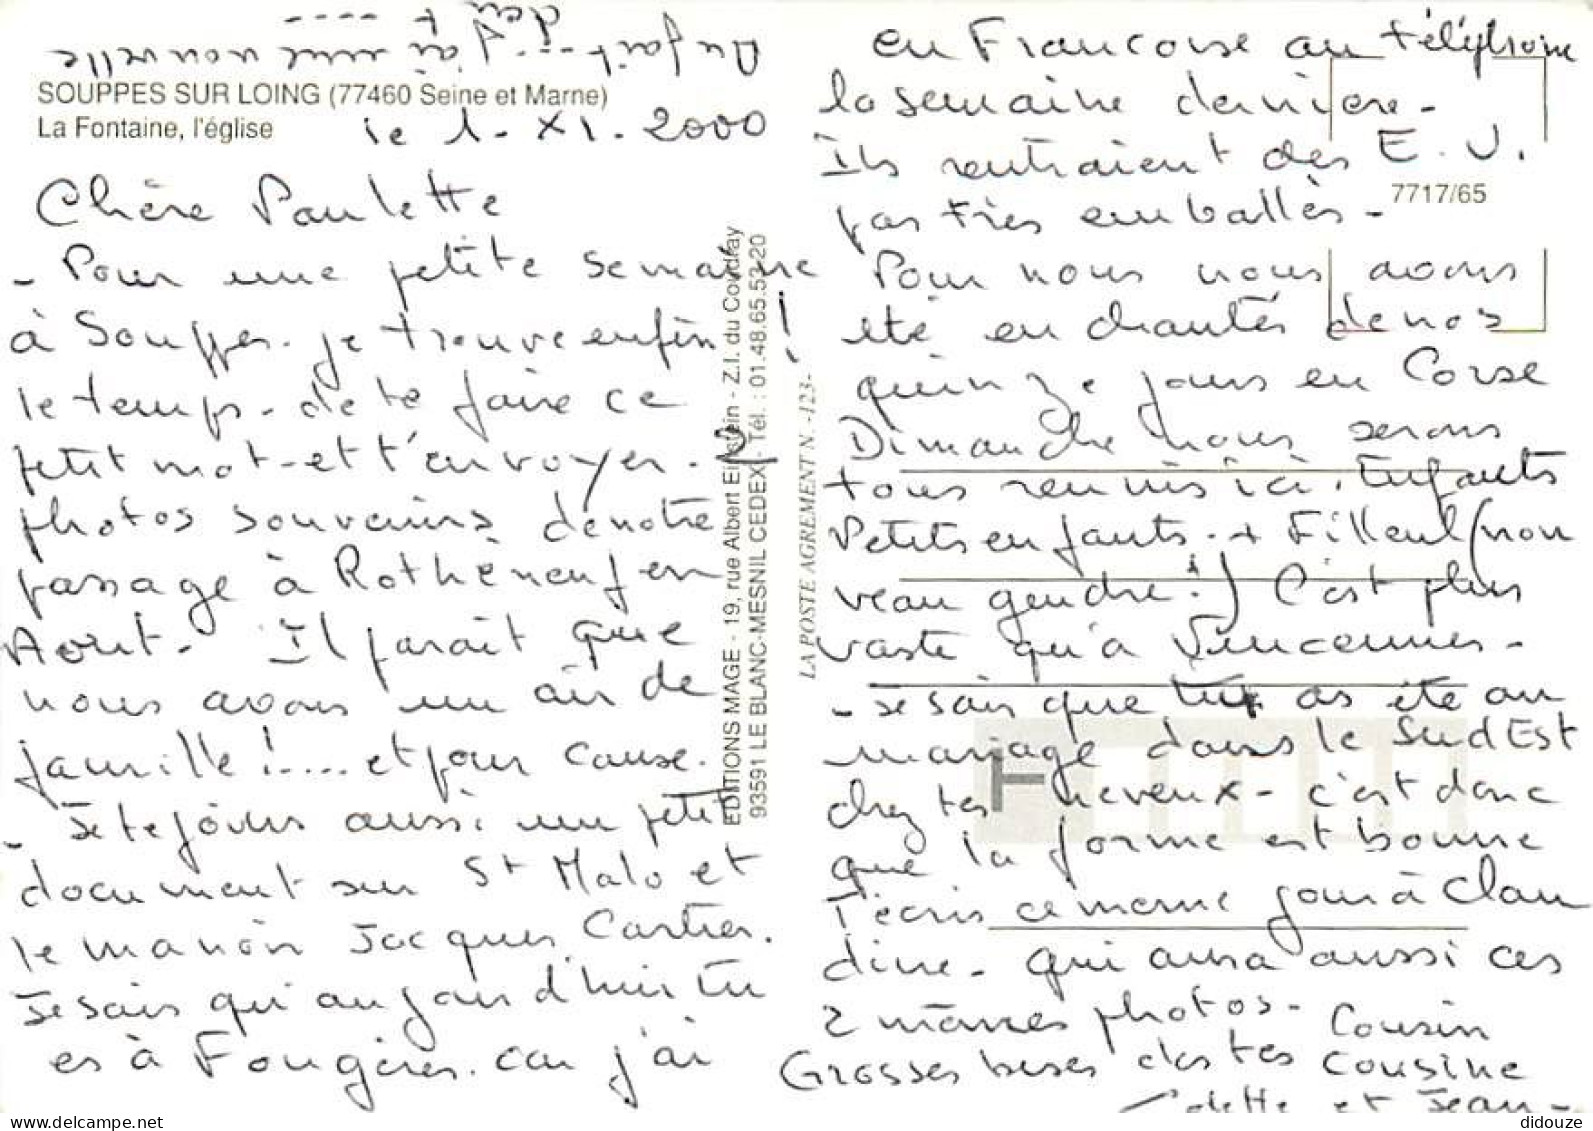 Au fait .... j'ai une nouvelle
dent ----
SOUPPES SUR LOING (77460 Seine et Marne)
La Fontaine, l'église
le 1-XI-2000
Chère Paulette
- Pour une petite semaine
à Souppes. je trouve enfin !
le temps - de te faire ce
petit mot - et t'envoyer - 2
photos souvenirs de notre
passage à Rothéneuf en
Aout - Il parait que
nous avons un air de
famille !.... et pour cause.
- Je te joins aussi un petit
document sur St Malo et
le manoir Jacques Cartier.
Je sais qu'aujourd'hui tu
es à Fougères. car j'ai
EDITIONS MAGE - 19, rue Albert Einstein - Z.I. du Coudray
93591 LE BLANC-MESNIL CEDEX - Tél. : 01.48.65.53.20
LA POSTE AGREMENT N. -123-
eu Francoise au téléphone
la semaine derniere -
Ils rentraient des E.U.
7717/65
pas très emballés -
Pour nous nous avons
été enchantés de nos
quinze jours en Corse
Dimanche nous serons
tous reunis ici, Enfants
Petits enfants - + Filleul (nou
veau gendre !) C'est plus
vaste qu'à Vincennes -
- Je sais que tu as été au
mariage dans le Sud Est
chez tes neveux - c'est donc
que la forme est bonne
J'écris ce meme jour à Clau
dine - qui aura aussi ces
2 mêmes photos -
Grosses bises des tes Cousin
Cousine
Colette et Jean -
didouze